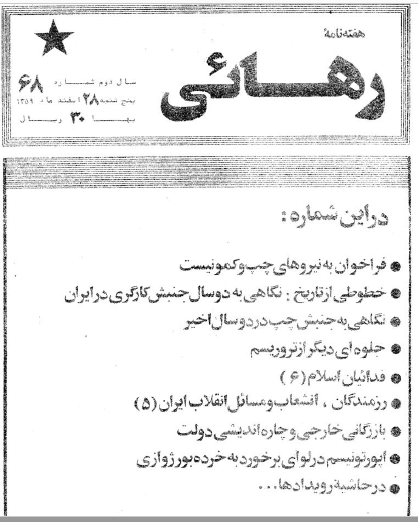 هفته‌نامهٔ
رهائی
سال دوم شماره ۶۸
پنج شنبه ۲۸ اسفند ماه ۱۳۵۹
بها ۳۰ ریال
در این شماره:
فراخوان به نیروهای چپ و کمونیست
خطوطی از تاریخ: نگاهی به دو سال جنبش کارگری در ایران
نگاهی به جنبش چپ در دو سال اخیر
جلوه ای دیگر از تروریسم
فدائیان اسلام (۶)
رزمندگان، انشعاب و مسائل انقلاب ایران (۵)
بازرگانی خارجی و چاره اندیشی دولت
اپورتونیسم در لوای برخورد به خرده بورژوازی
در حاشیهٔ رویدادها...